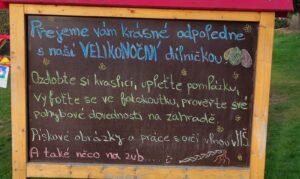 Přejeme vám krásné odpoledne
s naší VELIKONOČNÍ dílničkou
Ozdobte si kraslici, upleťte pomlázku,
vyfoťte se ve fotokoutku, prověřte své
pohybové dovednosti na zahradě.
Pískové obrázky a práce s ovčí vlnou v MŠ
A také něco na zub...